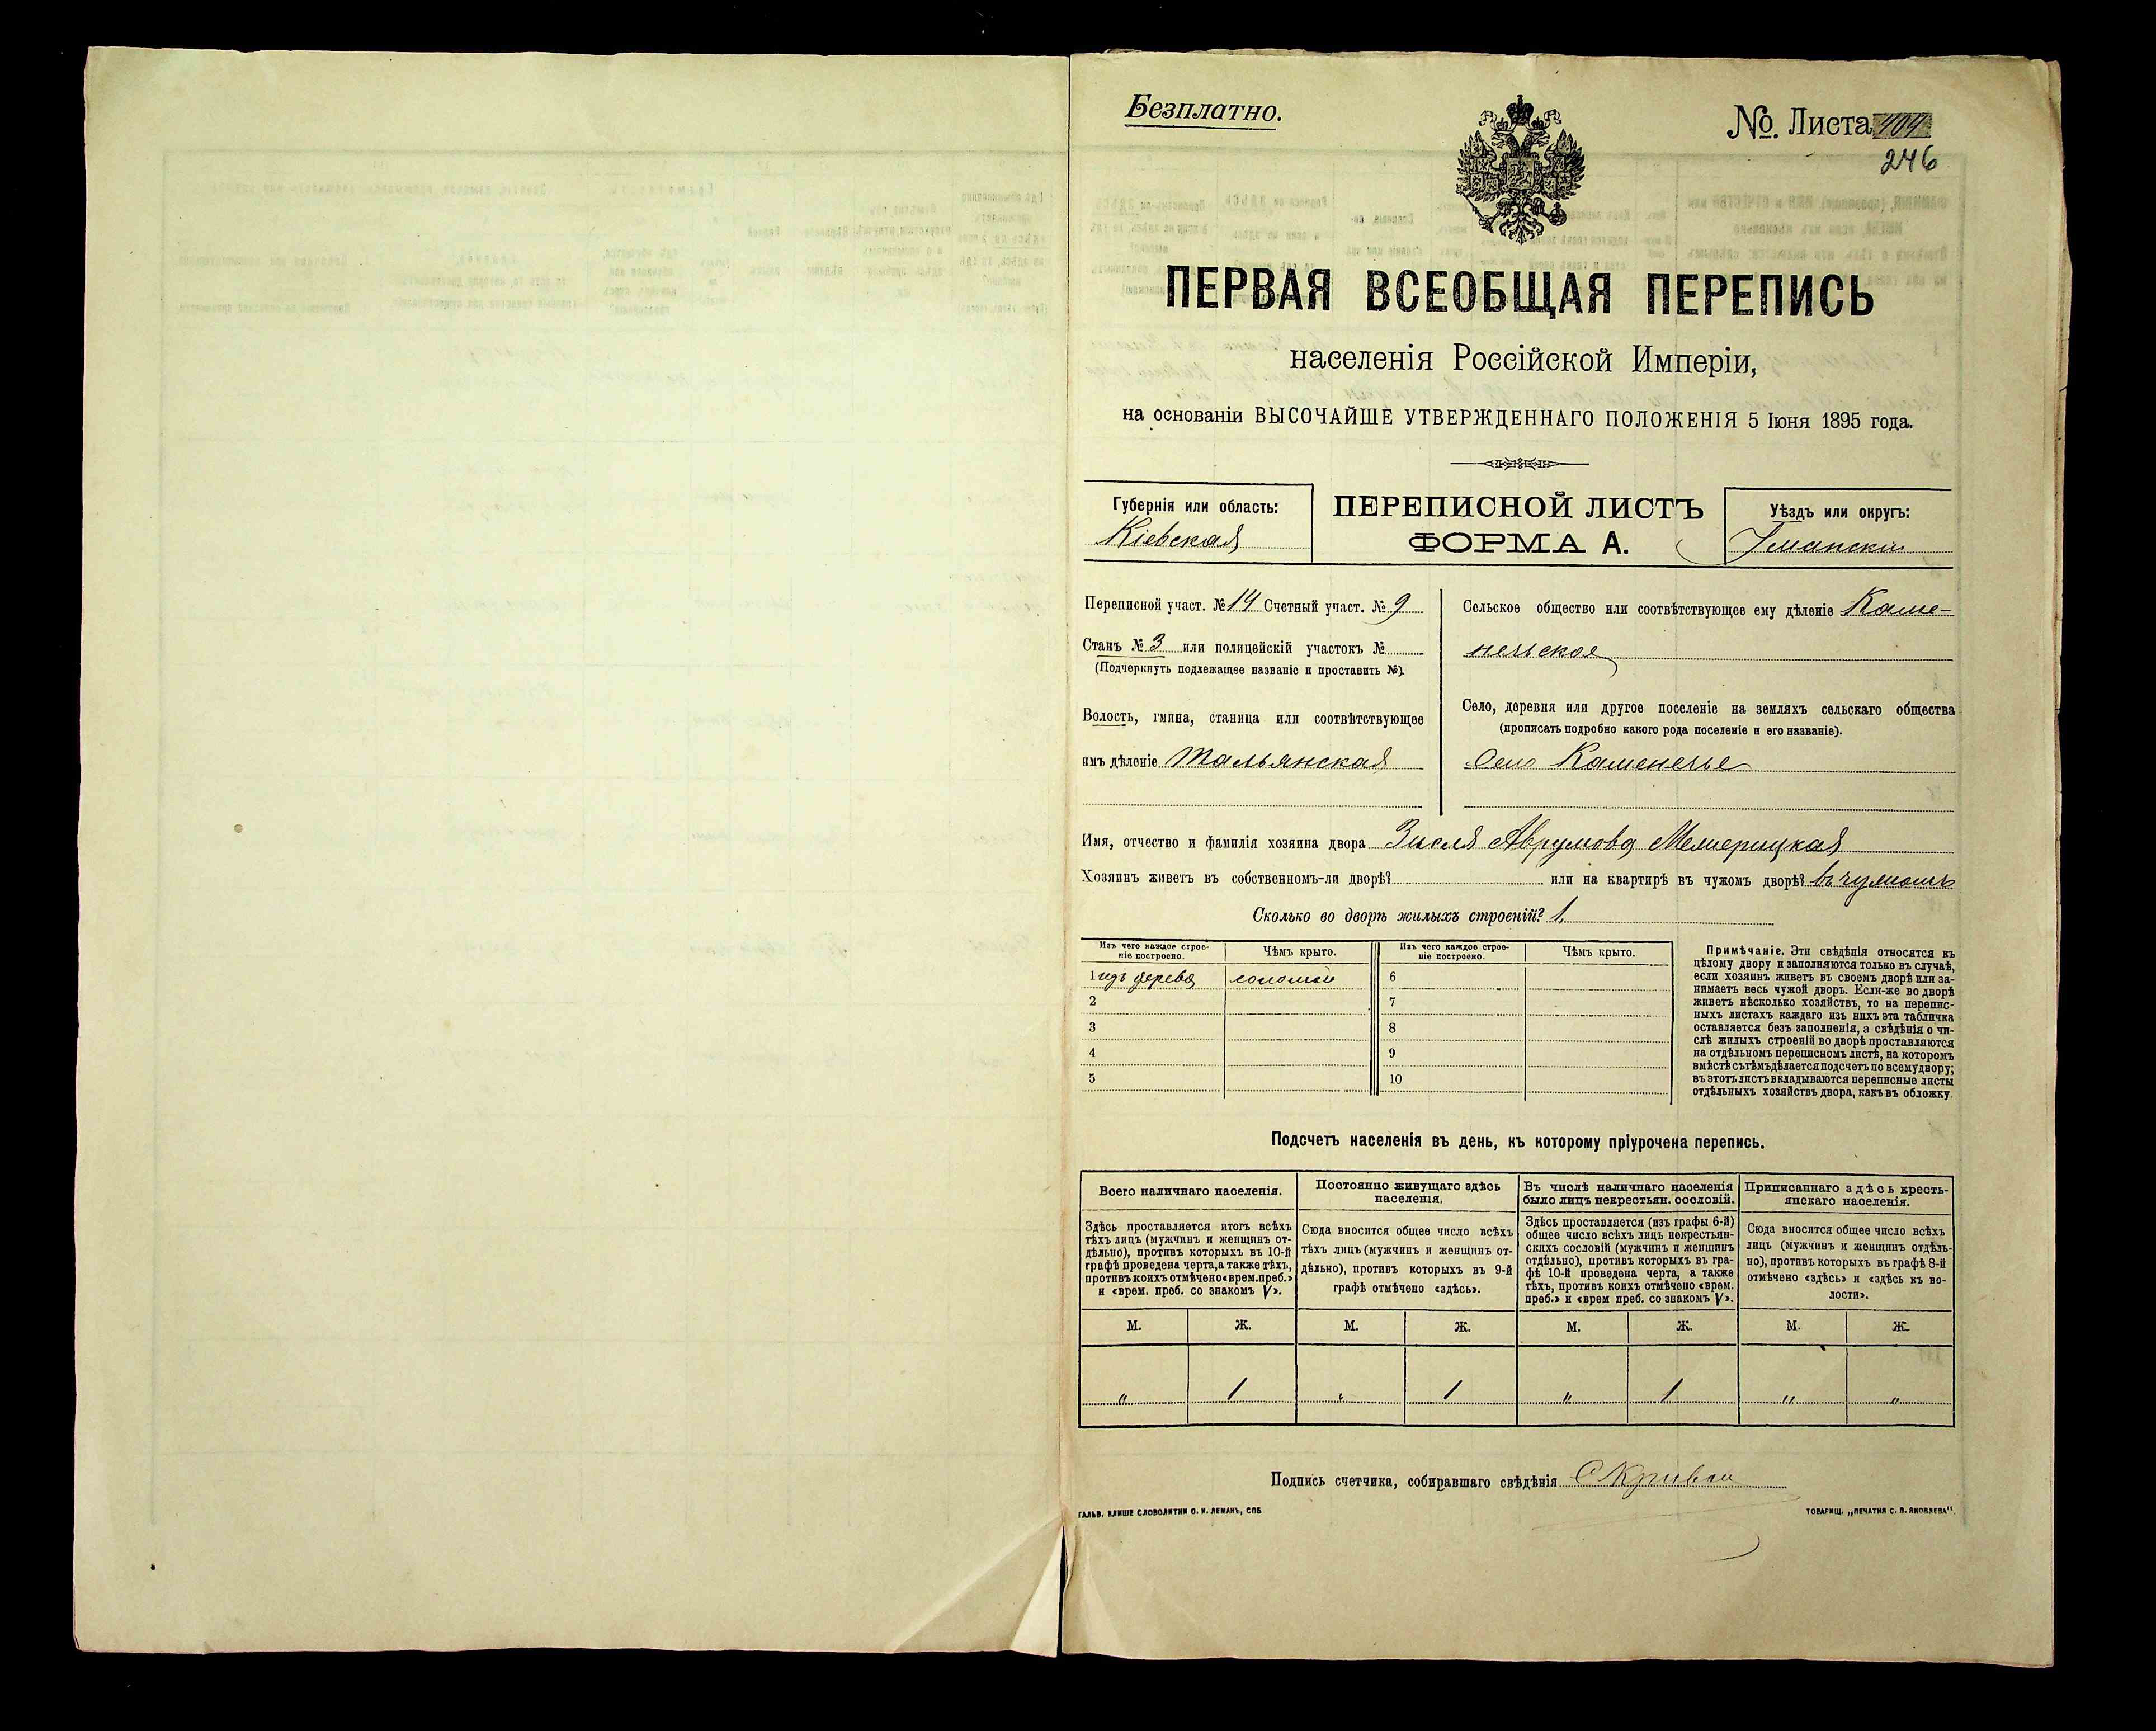 Безплатно.
№. Листа 404
246
ПЕРВАЯ ВСЕОБЩАЯ ПЕРЕПИСЬ
населенія Россійской Имперіи,
на основаніи ВЫСОЧАЙШЕ УТВЕРЖДЕННАГО ПОЛОЖЕНІЯ 5 Іюня 1895 года.
Губернія или область:
Кіевская
ПЕРЕПИСНОЙ ЛИСТЪ
ФОРМА А.
Уѣздъ или округъ:
Уманскій
Переписной участ. № 14 Счетный участ. № 9
Станъ № 3 или полицейскій участокъ №
(Подчеркнуть подлежащее названіе и проставить №).
Волость, гмина, станица или соотвѣтствующее
имъ дѣленіе Тальянская
Сельское общество или соотвѣтствующее ему дѣленіе Камене-
чьское
Село, деревня или другое поселеніе на земляхъ сельскаго общества
(прописать подробно какого рода поселеніе и его названіе).
Село Каменечье
Имя, отчество и фамилія хозяина двора Зисля Аврумова Межерицкая
Хозяинъ живетъ въ собственномъ-ли дворѣ? или на квартирѣ въ чужомъ дворѣ? въ чужомъ
Сколько во дворѣ жилыхъ строеній? 1
Изъ чего каждое строе-
ніе построено.
Чѣмъ крыто.
Изъ чего каждое строе-
ніе построено.
Чѣмъ крыто.
1 изъ дерева соломой 6
2 7
3 8
4 9
5 10
Примѣчаніе. Эти свѣдѣнія относятся къ
цѣлому двору и заполняются только въ случаѣ,
если хозяинъ живетъ въ своемъ дворѣ или за-
нимаетъ весь чужой дворъ. Если-же во дворѣ
живетъ нѣсколько хозяйствъ, то на перепис-
ныхъ листахъ каждаго изъ нихъ эта табличка
оставляется безъ заполненія, а свѣдѣнія о чи-
слѣ жилыхъ строеній во дворѣ проставляются
на отдѣльномъ переписномъ листѣ, на которомъ
вмѣстѣ съ тѣмъ дѣлается подсчетъ по всему двору;
въ этотъ листъ вкладываются переписные листы
отдѣльныхъ хозяйствъ двора, какъ въ обложку.
Подсчетъ населенія въ день, къ которому пріурочена перепись.
Всего наличнаго населенія.
Здѣсь проставляется итогъ всѣхъ
тѣхъ лицъ (мужчинъ и женщинъ от-
дѣльно), противъ которыхъ въ 10-й
графѣ проведена черта, а также тѣхъ,
противъ коихъ отмѣчено «врем. преб.»
и «врем. преб. со знакомъ V».
Постоянно живущаго здѣсь
населенія.
Сюда вносится общее число всѣхъ
тѣхъ лицъ (мужчинъ и женщинъ от-
дѣльно), противъ которыхъ въ 9-й
графѣ отмѣчено «здѣсь».
Въ числѣ наличнаго населенія
было лицъ некрестьян. сословій.
Здѣсь проставляется (изъ графы 6-й)
общее число всѣхъ лицъ некрестьян-
скихъ сословій (мужчинъ и женщинъ
отдѣльно), противъ которыхъ въ гра-
фѣ 10-й проведена черта, а также
тѣхъ, противъ коихъ отмѣчено «врем.
преб.» и «врем преб. со знакомъ V».
Приписаннаго здѣсь кресть-
янскаго населенія.
Сюда вносится общее число всѣхъ
лицъ (мужчинъ и женщинъ отдѣль-
но), противъ которыхъ въ графѣ 8-й
отмѣчено «здѣсь» и «здѣсь къ во-
лости».
М. Ж. М. Ж. М. Ж. М. Ж.
„ 1 „ 1 „ 1 „ „
Подпись счетчика, собиравшаго свѣдѣнія
ГАЛЬВ. КЛИШЕ СЛОВОЛИТНИ О. И. ЛЕМАНЪ, СПБ
ТОВАРИЩ. „ПЕЧАТНЯ С. П. ЯКОВЛЕВА".